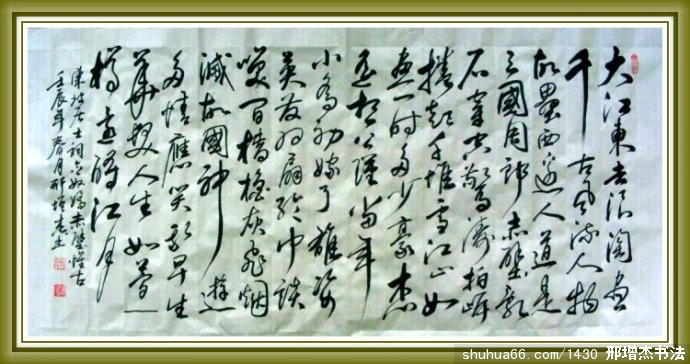 大江東去浪淘盡
千古風流人物
故壘西邊人道是
三國周郎赤壁亂
石穿空驚濤拍岸
捲起千堆雪江山如
畫一時多少豪杰
遥想公瑾當年
小喬初嫁了雄姿
英發羽扇綸巾談
笑間檣櫓灰飛烟
滅故國神遊
多情應笑我早生
華髮人生如夢一
樽還酹江月
東坡居士詞念奴嬌赤壁懷古
壬辰年春月邢增杰书
shuhua66.com/1430 邢增杰书法